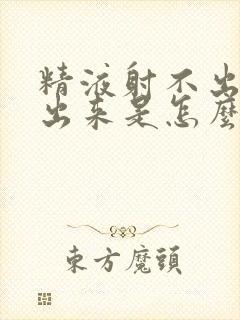 精液射不出
出来是怎麼
東方魔頭